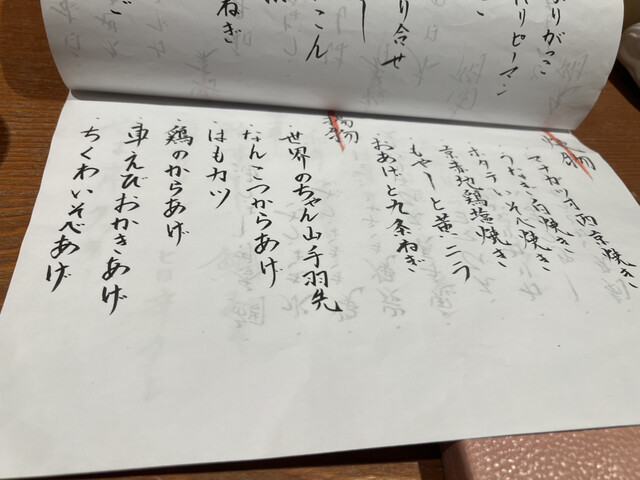 りがっこ
リピーマン
り合せ
こん
ねぎ
焼物
マナガツオ西京焼き
うなぎ白焼き
ホタテいそべ焼き
京赤地鶏塩焼き
もやしと黄ニラ
おあげと九条ねぎ
揚物
世界のちゃん山手羽先
なんこつからあげ
はもカツ
鶏のからあげ
車えびおかきあげ
ちくわいそべあげ